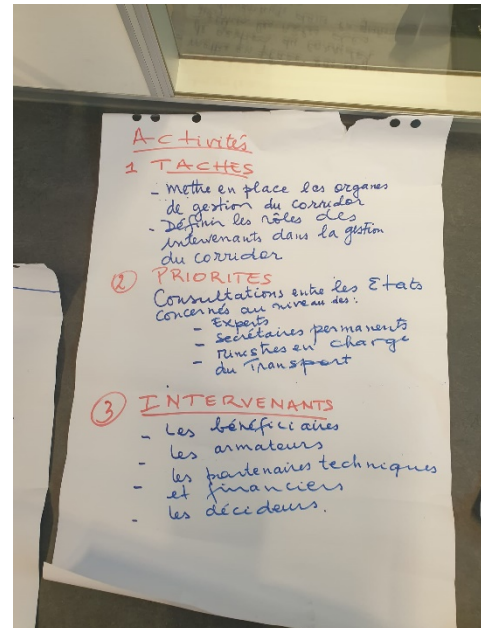 Activités
1 TACHES
- Mettre en place les organes
de gestion du corridor
- Définir les rôles des
intervenants dans la gestion
du corridor
② PRIORITES
Consultations entre les Etats
concernés au niveau des:
- Experts
- Secrétaires permanents
- Ministres en charge
du Transport
③ INTERVENANTS
- Les bénéficiaires
- les armateurs
- les partenaires techniques
- et financiers
- les décideurs.